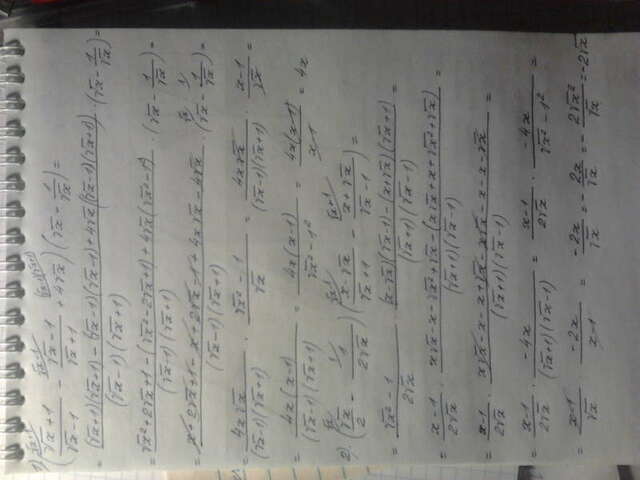 1) ((√x+1)/(√x-1) - (√x-1)/(√x+1) + 4√x) (√x - 1/√x) =
= ((√x+1)(√x+1) - (√x-1)(√x-1) + 4√x(√x-1)(√x+1))/((√x-1)(√x+1)) · (√x - 1/√x) =
= (√x²+2√x+1-(√x²-2√x+1)+4√x(√x²-1²))/((√x-1)(√x+1)) · (√x - 1/√x) =
= (x+2√x+1-x+2√x-1+4x√x-4√x)/((√x-1)(√x+1)) · (√x - 1/√x) =
= 4x√x/((√x-1)(√x+1)) · (√x²-1)/√x = 4x√x/((√x-1)(√x+1)) · (x-1)/√x =
= 4x(x-1)/((√x-1)(√x+1)) = 4x(x-1)/(√x²-1²) = 4x(x-1)/(x-1) = 4x
2) (√x/2 - 1/(2√x)) ((x-√x)/(√x+1) - (x+√x)/(√x-1)) =
= (√x²-1)/(2√x) · ((x-√x)(√x-1)-(x+√x)(√x+1))/((√x+1)(√x-1)) =
= (x-1)/(2√x) · (x√x-x-√x²+√x-(x√x+x+√x²+√x))/((√x+1)(√x-1)) =
= (x-1)/(2√x) · (x√x-x-x+√x-x√x-x-x-√x)/((√x+1)(√x-1)) =
= (x-1)/(2√x) · -4x/((√x+1)(√x-1)) = (x-1)/(2√x) · -4x/(√x²-1²) =
= (x-1)/√x · -2x/(x-1) = -2x/√x = -2x/√x = -2√x²/√x = -2√x